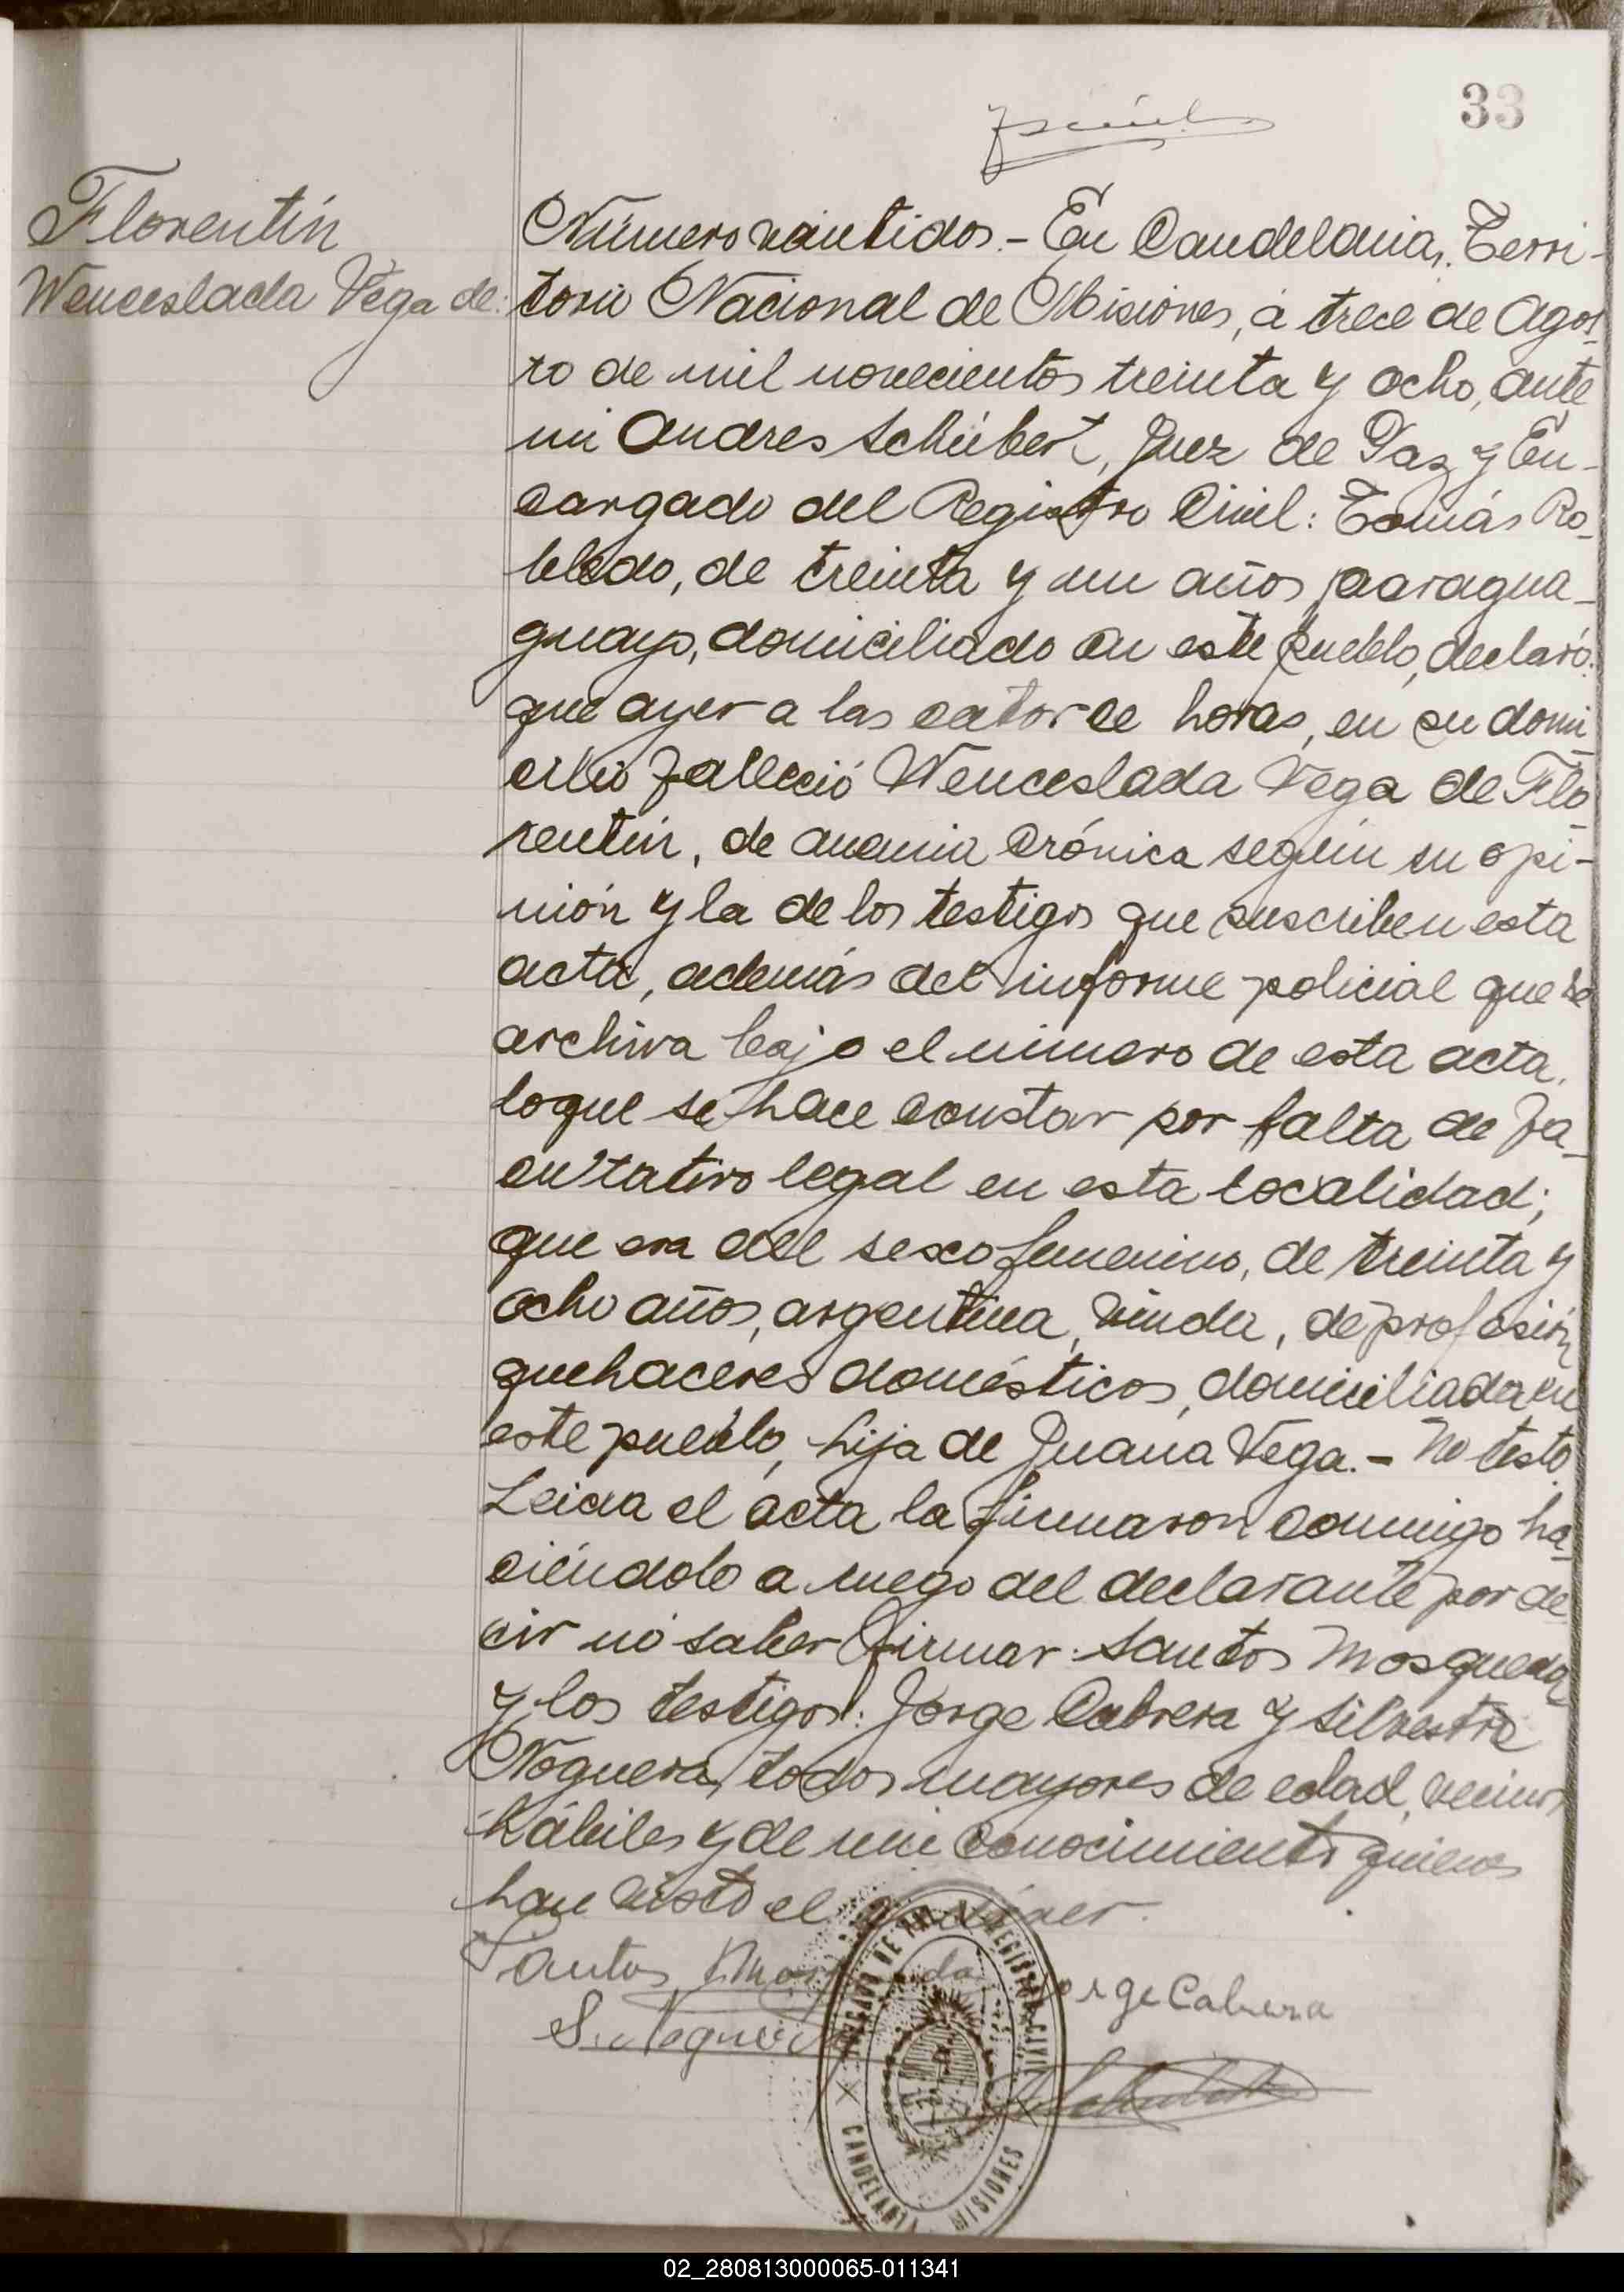 33
Florentín
Wenceslada Vega de:
Número veintidos.- En Candelaria, Terri-
torio Nacional de Misiones, a trece de Agos-
to de mil novecientos treinta y ocho, ante
mi Andres Schübert, Juez de Paz y En-
cargado del Registro Civil: Tomás Ro-
bledo, de treinta y un años, paragua-
guayo, domiciliado en este pueblo, declaró:
que ayer a las catorce horas, en su domi-
cilio falleció Wenceslada Vega de Flo-
rentín, de anemia crónica según su opi-
nión y la de los testigos que suscriben esta
acta, además del informe policial que se
archiva bajo el número de esta acta,
lo que se hace constar por falta de fa-
cultativo legal en esta localidad;
que era del sexo femenino, de treinta y
ocho años, argentina, viuda, de profesión
quehaceres domésticos, domiciliada en
este pueblo, hija de Juana Vega.- No testó.
Leida el acta la firmaron conmigo ha-
ciéndolo a ruego del declarante por de-
cir no saber firmar: Santos Mosqueda
y los testigos: Jorge Cabrera y Silvestre
Noguera, todos mayores de edad, vecinos
hábiles y de mi conocimiento quienes
han visto el cadáver.
Santos Mosqueda Jorge Cabrera
S. Noguera
JUZGADO DE PAZ Y REGISTRO CIVIL
CANDELARIA MISIONES
02_280813000065-011341